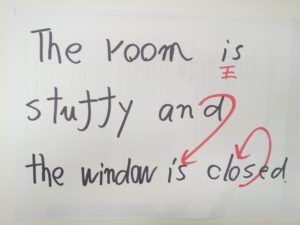 The room is
stuffy and
the window is closed.